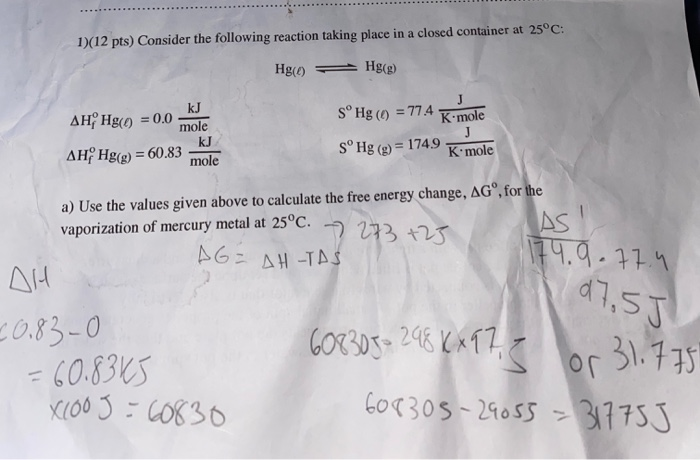 1)(12 pts) Consider the following reaction taking place in a closed container at 25°C:
Hg(ℓ) ⇌ Hg(g)
ΔH°f Hg(ℓ) = 0.0 kJ/mole
S° Hg (ℓ) = 77.4 J/K·mole
ΔH°f Hg(g) = 60.83 kJ/mole
S° Hg (g) = 174.9 J/K·mole
a) Use the values given above to calculate the free energy change, ΔG°, for the
vaporization of mercury metal at 25°C. → 273 +25
ΔG = ΔH -TΔS
ΔS
174.9 - 77.4
97.5J
ΔH
60.83-0
= 60.83KJ
x100 J = 60830
60830J - 298 K x 97.5
or 31.775
60830J - 29055 = 31775J